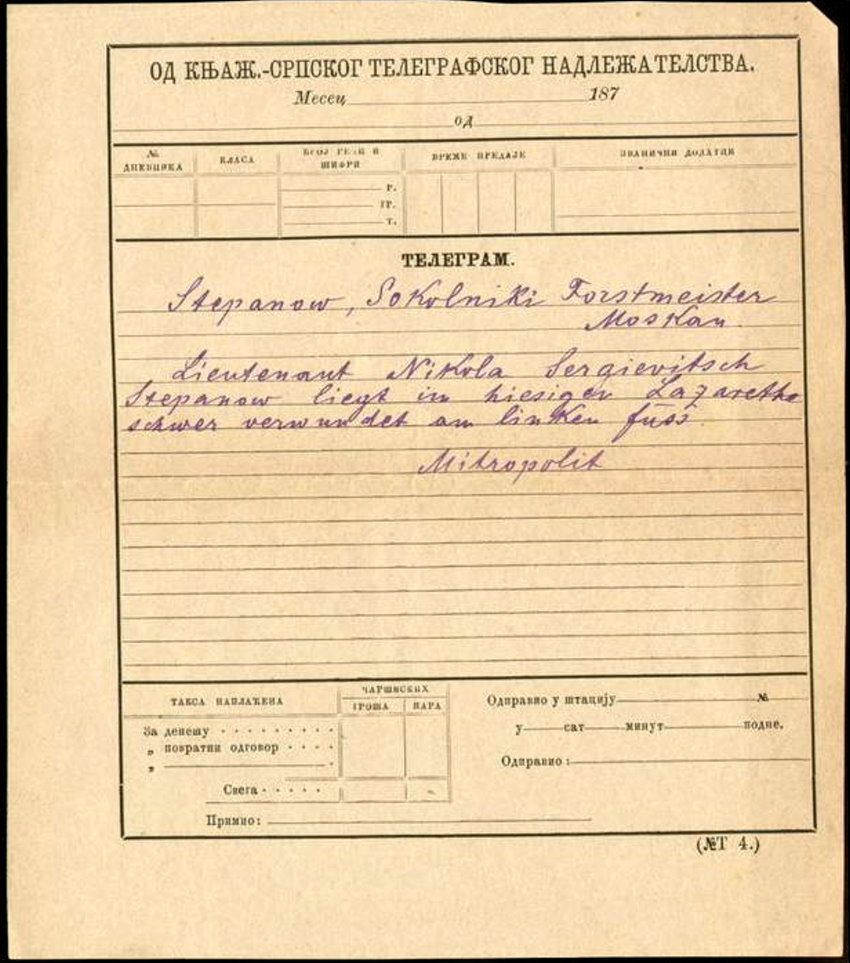 ОД КЊАЖ.-СРПСКОГ ТЕЛЕГРАФСКОГ НАДЛЕЖАТЕЛСТВА.
Месец 187
од
№ ДНЕВНИКА
КЛАСА
БРОЈ РЕЧИ И ШИФРИ
ВРЕМЕ ПРЕДАЈЕ
ЗВАНИЧНИ ДОДАТЦИ
Р.
ГР.
Т.
ТЕЛЕГРАМ.
Stepanow, Sokolniki Forstmeister
Moskau.
Lieutenant Nikola Sergievitsch
Stepanow liegt im hiesigen Lazarethe
schwer verwundet am linken fuss.
Mitropolit
ТАКСА НАПЛАЋЕНА
ЧАРШИСКИХ
ГРОША
ПАРА
За депешу
„ повратни одговор
„
Свега
Примио:
Одправио у штацију №
у сат минут подне.
Одправио:
(№Т 4.)